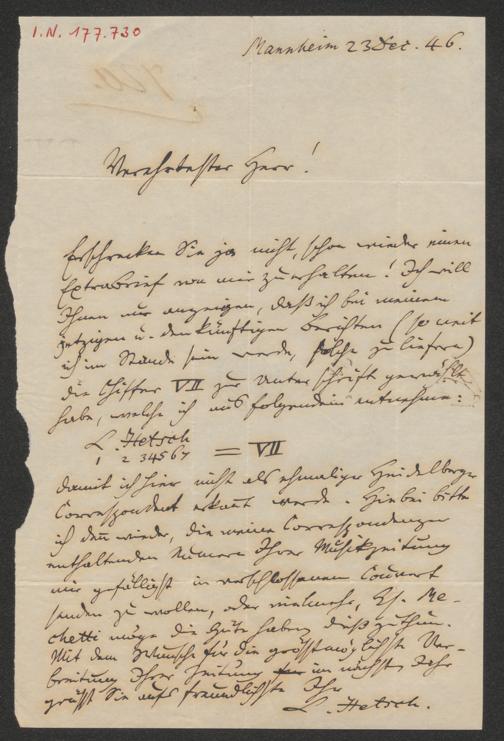 I.N. 177.730
Mannheim 23 Dec. 46.
Verehrtester Herr!
Erschrecken Sie ja nicht, schon wieder einen
Extrabrief von mir zu erhalten! Ich will
Ihnen nur anzeigen, daß ich bei meinem
jetzigen u. den künftigen Berichten (so weit
ich im Stande sein werde, solche zu liefern)
die Chiffer VII zur Unterschrift gewählt
habe, welche ich aus folgendem entnehme:
L. Hetsch = VII
1 2 3 4 5 6 7
damit ich hier nicht als ehmaliger Heidelberger
Correspondent erkannt werde. Hiebei bitte
ich denn wieder, die meine Correspondenzen
enthaltenden Numern Ihrer Musikzeitung
mir gefälligst in verschlossenem Couvert
senden zu wollen, oder vielmehr, H. Me-
chetti möge die Güte haben dieß zu thun.
Mit dem Wunsche für die größtmöglichste Ver-
breitung Ihrer Zeitung im nächsten Jahr
grüßt Sie aufs freundlichste Ihr
L. Hetsch.